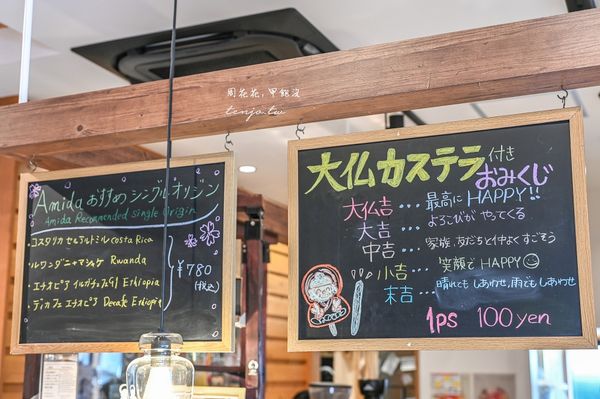 周花花，甲飽沒
tenjo.tw
Amida おすすめ シングルオリジン
Amida Recommended Single Origin
・コスタリカ セルアルトドル costa Rica
・ルワンダ ニャマシャケ Rwanda
・エチオピア イルガチェフェG1 Ethiopia
・ディカフェ エチオピア Decafe Ethiopia
¥780
(税込)
大仏カステラ付き
おみくじ
大仏吉…最高にHAPPY!!
大吉…よろこびが やってくる
中吉…家族、友だちと仲よくすごそう
小吉…笑顔でHAPPY
末吉…晴れても しあわせ、雨でも しあわせ
1ps 100yen